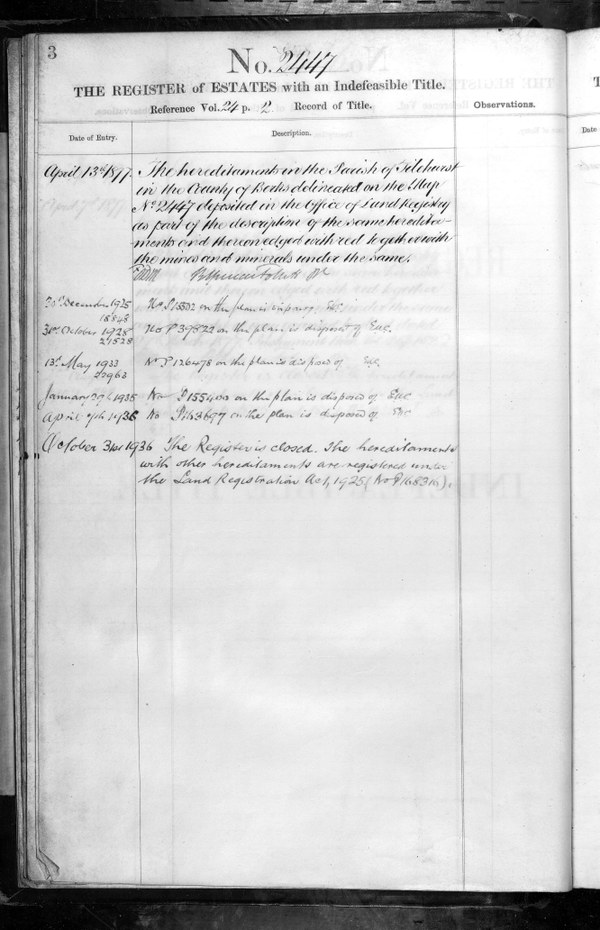 3
No. 2447
THE REGISTER of ESTATES with an Indefeasible Title.
Reference Vol. 24 p. 2. Record of Title.
Observations.
Date of Entry.
Description.
April 13th 1877.
The hereditaments in the Parish of Tilehurst
in the County of Berks delineated on the Map
No 2447 deposited in the Office of Land Registry
as part of the description of the same heredita-
ments and thereon edged with red together with
the mines and minerals under the same.
December 1925
18848
No on the plan is disposed of
31st October 1928
21528
No P 37822 on the plan is disposed of
13th May 1933
22963
No P 126478 on the plan is disposed of
January 29th 1935
No P 155400 on the plan is disposed of
April 7th 1936
No P163697 on the plan is disposed of
October 31st 1936
The Register is closed. The hereditaments
with other hereditaments are registered under
the Land Registration Act, 1925 (No P168316).
Date